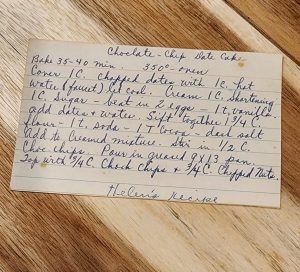 Choclate-Chip Date Cake
Bake 35-40 min. 350°-oven
Cover 1 C. chopped dates with 1 C. hot
water (faucet) let cool. Cream 1 C. shortening
1 C. sugar - beat in 2 eggs - 1 t. vanilla
add dates & water. Sift together 1 3/4 C.
flour - 1 t. soda - 1 T Cocoa - dash salt
Add to Creamed mixture. Stir in 1/2 C.
Choc. chips. Pour in greased 9x13 pan.
Top with 3/4 C. Choch Chips & 3/4 C. Chopped Nuts.
Helen's recipe